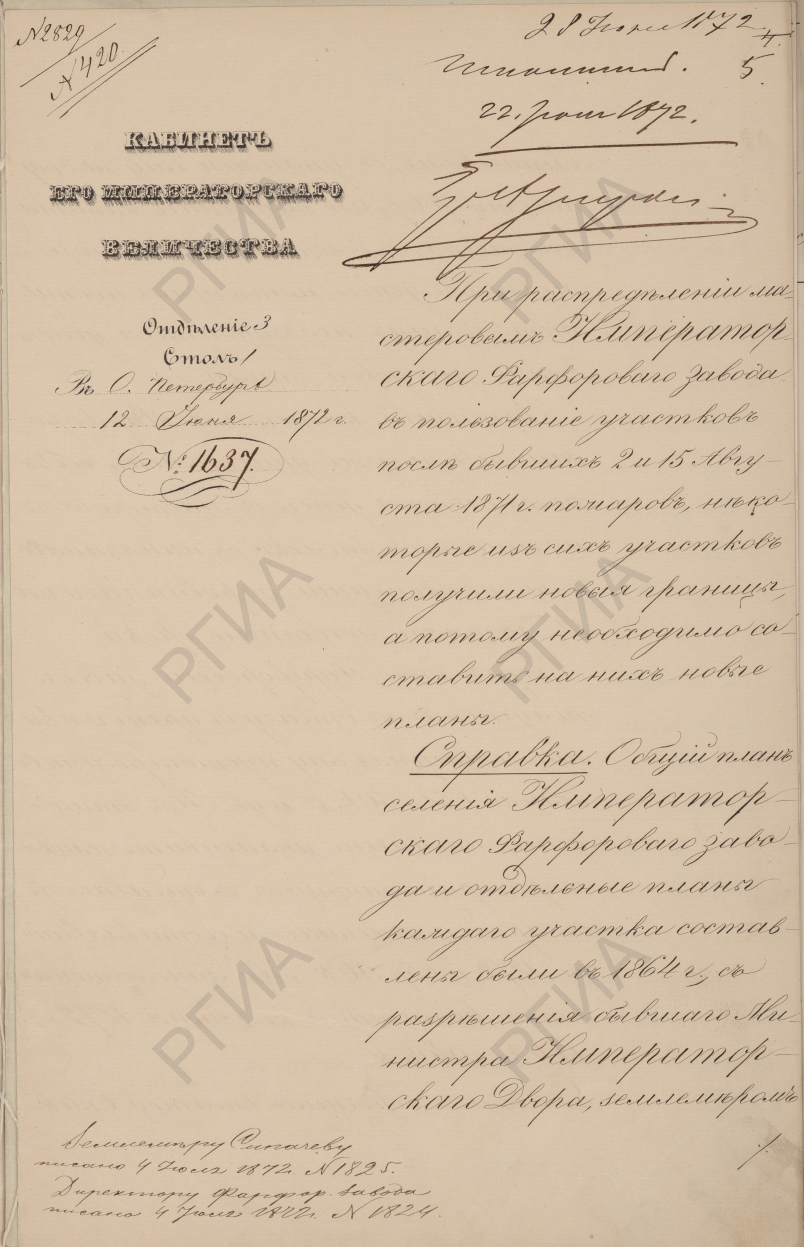 № 2829
№ 420.
28 Іюня 1872
4
5.
22. Іюня 1872.
КАБИНЕТЪ
ЕГО ИМПЕРАТОРСКАГО
ВЕЛИЧЕСТВА
Отдѣленіе 3
Столъ 1
Въ С. Петербургѣ
12 Іюня 1872 г.
№ 1637.
При распредѣленіи ма-
стеровымъ Император-
скаго Фарфороваго завода
въ пользованіе участковъ
послѣ бывшихъ 2 и 15 Авгу-
ста 1871 г. пожаровъ, нѣко-
торые изъ сихъ участковъ
получили новыя границы,
а потому необходимо со-
ставить на нихъ новые
планы.
Справка. Общій планъ
селенія Император-
скаго Фарфороваго заво-
да и отдѣльные планы
каждаго участка состав-
лены были въ 1864 г., съ
разрѣшенія бывшаго Ми-
нистра Император-
скаго Двора, землемѣромъ
Землемѣру Сипачеву
писано 4 Іюля 1872. № 1825.
Директору Фарфор. завода
писано 4 Іюля 1872. № 1824.
РГИА
РГИА
РГИА
РГИА
РГИА
РГИА